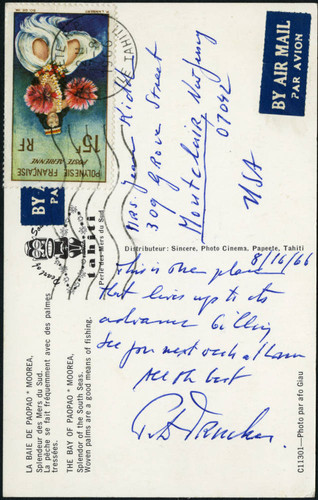 BY AIR MAIL
PAR AVION
15F
RF
POLYNESIE FRANÇAISE
POSTE AERIENNE
BY AI
tahiti
Perle des Mers du Sud
Pearl of
Mrs.
309 Grove Street
Montclair New Jersey
07042
USA
Distributeur: Sincere, Photo Cinema, Papeete, Tahiti
8/16/66
This is one place
that lives up to its
advance billing
See you next week at home
All the best
LA BAIE DE PAOPAO * MOOREA,
Splendeur des Mers du Sud.
La pêche se fait fréquemment avec des palmes
tressées.
THE BAY OF PAOPAO * MOOREA,
Splendor of the South Seas.
Woven palms are a good means of fishing.
C11301—Photo par afo Giau